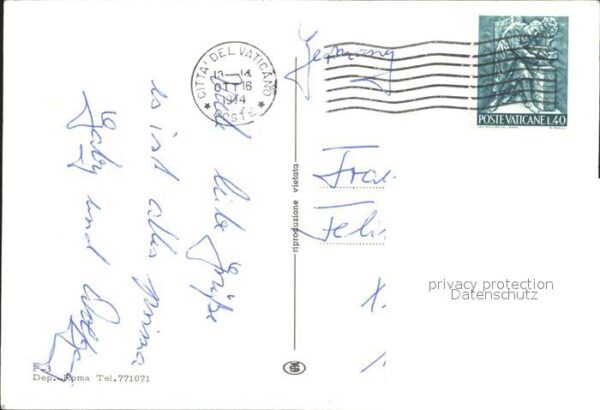 Germany
CITTA' DEL VATICANO
13-14
OTT 16
1974
POSTE
POSTE VATICANE L.40
Viele liebe Grüße
es ist alles prima
Gaby und Wolfgang
riproduzione vietata
Frau
Feli
privacy protection
Datenschutz
P-3
Dep. Roma Tel.771071